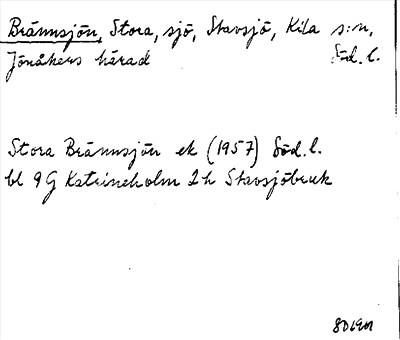 Brännsjön, Stora, sjö, Stavsjö, Kila s:n,
Jönåkers härad Söd.l.
Stora Brännsjön ek (1957) Söd.l.
bl 9G Katrineholm 2h Stavsjöbruk